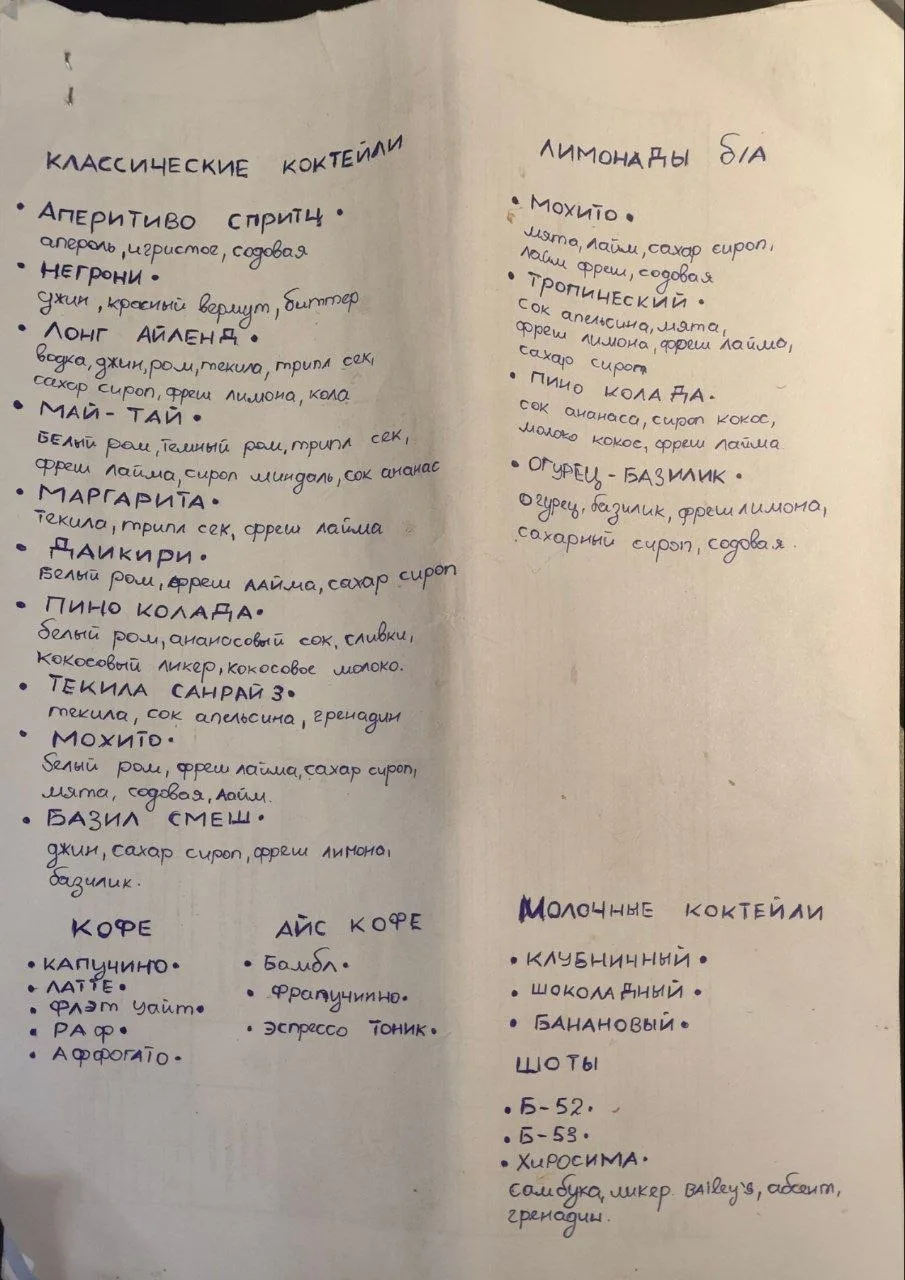 КЛАССИЧЕСКИЕ КОКТЕЙЛИ
• АПЕРИТИВО СПРИТЦ •
апероль, игристое, содовая
• НЕГРОНИ •
джин, красный вермут, биттер
• ЛОНГ АЙЛЕНД •
водка, джин, ром, текила, трипл сек,
сахар сироп, фреш лимона, кола
• МАЙ-ТАЙ •
БЕлый ром, темный ром, трипл сек,
фреш лайма, сироп миндаль, сок ананас
• МАРГАРИТА •
текила, трипл сек, фреш лайма
• ДАИКИРИ •
Белый ром, фреш лайма, сахар сироп
• ПИНО КОЛАДА •
белый ром, ананасовый сок, сливки,
кокосовый ликер, кокосовое молоко.
• ТЕКИЛА САНРАЙЗ •
текила, сок апельсина, гренадин
• МОХИТО •
белый ром, фреш лайма, сахар сироп,
мята, содовая, лайм.
• БАЗИЛ СМЕШ •
джин, сахар сироп, фреш лимона,
базилик.
КОФЕ
• КАПУЧИНО •
• ЛАТТЕ •
• ФЛЭТ УАЙТ •
• РАФ •
• АФФОГАТО •
АЙС КОФЕ
• Бамбл •
• Фрапучинно •
• Эспрессо ТОНИК •
ЛИМОНАДЫ б/А
• МОХИТО •
мята, лайм, сахар сироп,
лайм фреш, содовая
• ТРОПИЧЕСКИЙ •
сок апельсина, мята,
фреш лимона, фреш лайма,
сахар сироп
• ПИНО КОЛАДА •
сок ананаса, сироп кокос,
молоко кокос, фреш лайма
• ОГУРЕЦ - БАЗИЛИК •
огурец, базилик, фреш лимона,
сахарный сироп, содовая.
МОЛОЧНЫЕ КОКТЕЙЛИ
• КЛУБНИЧНЫЙ •
• ШОКОЛАДНЫЙ •
• БАНАНОВЫЙ •
ШОТЫ
• Б-52 •
• Б-53 •
• ХИРОСИМА •
самбука, ликер BAiley's, абсент,
гренадин.